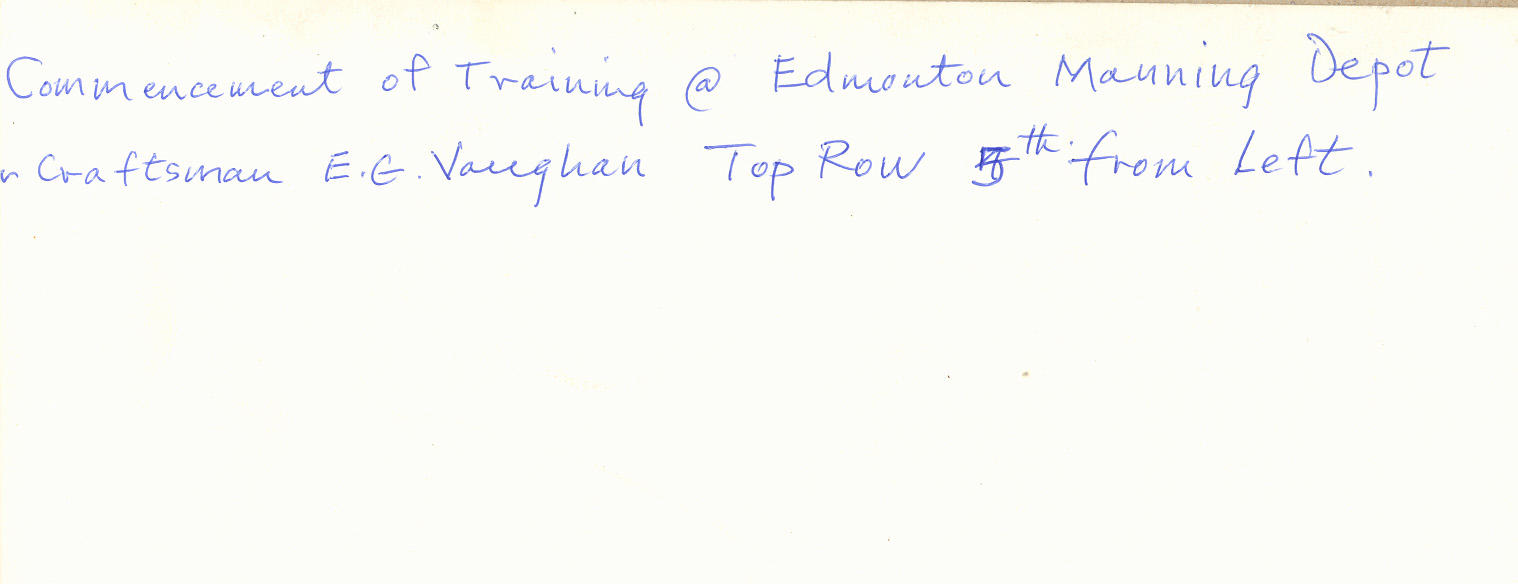 Commencement of Training @ Edmonton Manning Depot
Craftsman E.G. Vaughan Top Row 5th from Left.